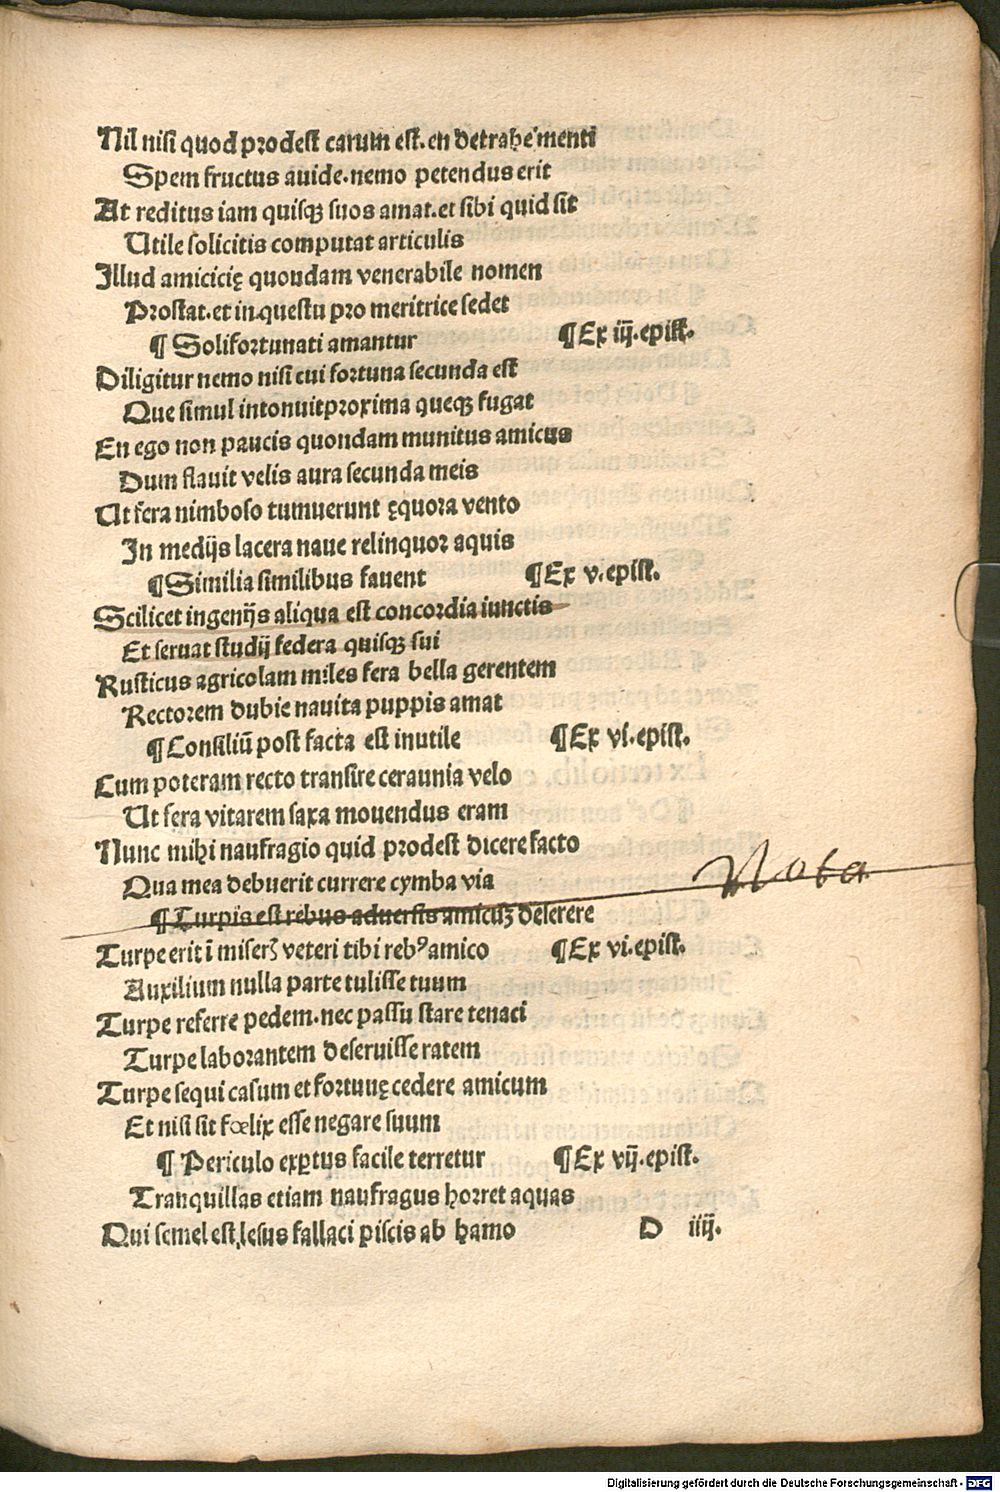 Nil nisi quod prodest carum est. en detrahe menti
Spem fructus auide. nemo petendus erit
At reditus iam quisqꝫ suos amat. et sibi quid sit
Utile solicitis computat articulis
Illud amicicię quondam venerabile nomen
Prostat. et in questu pro meritrice sedet
¶ Soli fortunati amantur ¶ Ex iij. epist.
Diligitur nemo nisi cui fortuna secunda est
Que simul intonuit proxima queqꝫ fugat
En ego non paucis quondam munitus amicus
Dum flauit velis aura secunda meis
Ut fera nimboso tumuerunt ęquora vento
In medijs lacera naue relinquor aquis
¶ Similia similibus fauent ¶ Ex v. epist.
Scilicet ingenijs aliqua est concordia iunctis
Et seruat studij federa quisqꝫ sui
Rusticus agricolam miles fera bella gerentem
Rectorem dubie nauita puppis amat
¶ Consiliū post facta est inutile ¶ Ex vi. epist.
Cum poteram recto transire ceraunia velo
Ut fera vitarem saxa mouendus eram
Nunc mihi naufragio quid prodest dicere facto
Qua mea debuerit currere cymba via
Nota
¶ Turpis est rebus aduersis amicūꝫ deserere
Turpe erit ī miserꝭ veteri tibi rebꝰ amico ¶ Ex vi. epist.
Auxilium nulla parte tulisse tuum
Turpe referre pedem. nec passu stare tenaci
Turpe laborantem deseruisse ratem
Turpe sequi casum et fortunę cedere amicum
Et nisi sit fœlix esse negare suum
¶ Periculo exꝑtus facile terretur ¶ Ex vij. epist.
Tranquillas etiam naufragus horret aquas
Qui semel est lesus fallaci piscis ab hamo D iiij.
Digitalisierung gefördert durch die Deutsche Forschungsgemeinschaft - DFG